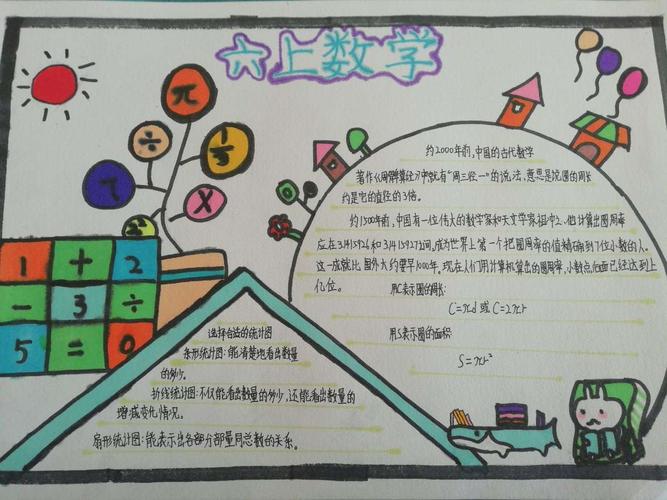 六上数学
π
÷
1/3
7
X
1 + 2
- 3 ÷
5 = 0
约2000年前,中国的古代数学
著作《周髀算经》中就有"周三径一"的说法,意思是说圆的周长
约是它的直径的3倍。
约1500年前,中国有一位伟大的数学家和天文学家祖冲之.他计算出圆周率
应在3.1415926和3.1415927之间,成为世界上第一个把圆周率的值精确到7位小数的人.
这一成就比国外大约要早1000年.现在人们用计算机算出的圆周率,小数点后面已经达到上
亿位。
用C表示圆的周长:
C=πd 或 C=2πr
用S表示圆的面积:
S=πr²
选择合适的统计图
条形统计图:能清楚地看出数量
的多少。
折线统计图:不仅能看出数量的多少,还能看出数量的
增减变化情况。
扇形统计图:能表示出各部分部量同总数的关系。